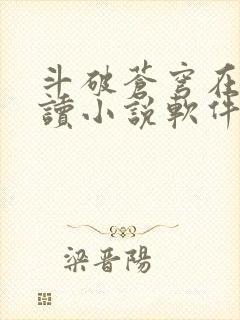 斗破蒼穹在
讀小說軟件
梁晋陽